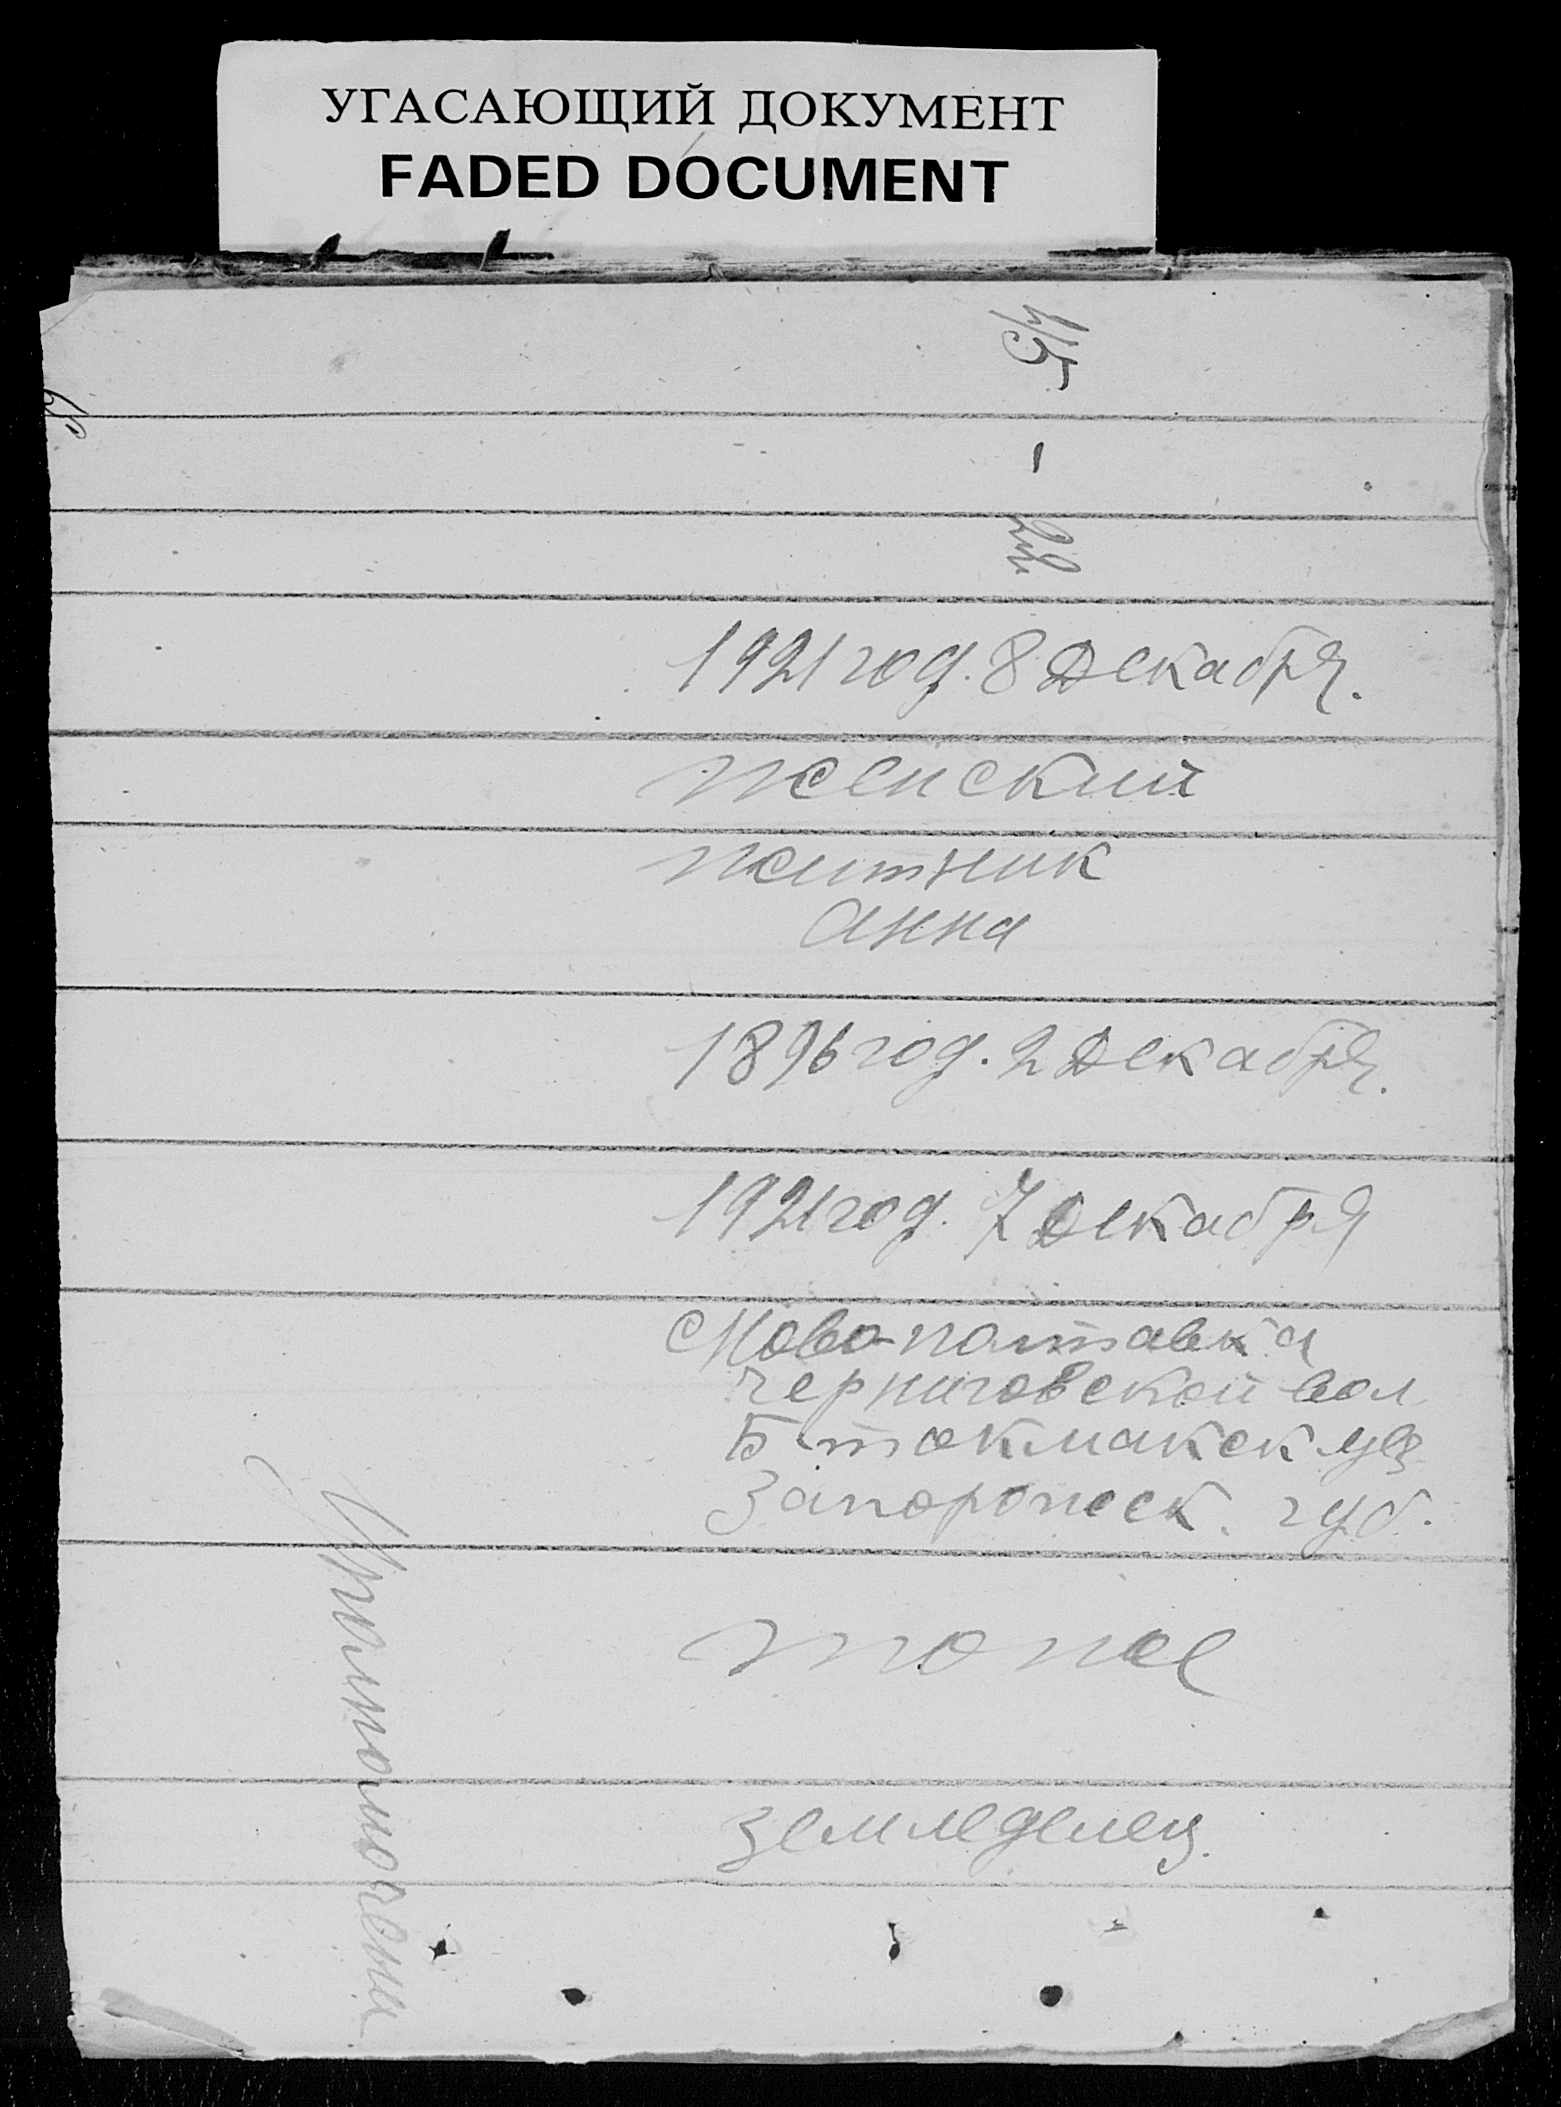 УГАСАЮЩИЙ ДОКУМЕНТ
FADED DOCUMENT
1921 год. 8 Декабря.
женский
житник
анна
1896 год. 2 Декабря.
1921 год. 7 Декабря
Ново-полтавка
черниговской вол
Б-токмакск уез
Запорожск. губ.
тоже
земледелец.